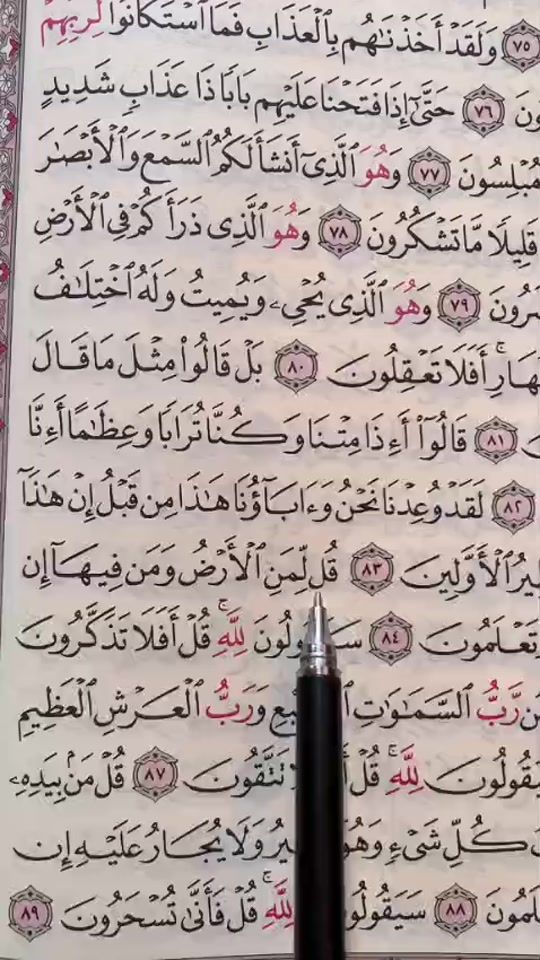 ﴿٧٥﴾ وَلَقَدْ أَخَذْنَٰهُم بِٱلْعَذَابِ فَمَا ٱسْتَكَانُوا۟ لِرَبِّهِمْ
ونَ ﴿٧٦﴾ حَتَّىٰٓ إِذَا فَتَحْنَا عَلَيْهِم بَابًا ذَا عَذَابٍ شَدِيدٍ
مُبْلِسُونَ ﴿٧٧﴾ وَهُوَ ٱلَّذِىٓ أَنشَأَ لَكُمُ ٱلسَّمْعَ وَٱلْأَبْصَٰرَ
قَلِيلًا مَّا تَشْكُرُونَ ﴿٧٨﴾ وَهُوَ ٱلَّذِى ذَرَأَكُمْ فِى ٱلْأَرْضِ
شَرُونَ ﴿٧٩﴾ وَهُوَ ٱلَّذِى يُحْىِۦ وَيُمِيتُ وَلَهُ ٱخْتِلَٰفُ
هَارِ ۚ أَفَلَا تَعْقِلُونَ ﴿٨٠﴾ بَلْ قَالُوا۟ مِثْلَ مَا قَالَ
﴿٨١﴾ قَالُوٓا۟ أَءِذَا مِتْنَا وَكُنَّا تُرَابًا وَعِظَٰمًا أَءِنَّا
﴿٨٢﴾ لَقَدْ وُعِدْنَا نَحْنُ وَءَابَآؤُنَا هَٰذَا مِن قَبْلُ إِنْ هَٰذَآ
طِيرُ ٱلْأَوَّلِينَ ﴿٨٣﴾ قُل لِّمَنِ ٱلْأَرْضُ وَمَن فِيهَآ إِن
تَعْلَمُونَ ﴿٨٤﴾ سَيَقُولُونَ لِلَّهِ ۚ قُلْ أَفَلَا تَذَكَّرُونَ
مَن رَّبُّ ٱلسَّمَٰوَٰتِ ٱلسَّبْعِ وَرَبُّ ٱلْعَرْشِ ٱلْعَظِيمِ
يَقُولُونَ لِلَّهِ ۚ قُلْ أَفَلَا تَتَّقُونَ ﴿٨٧﴾ قُلْ مَنۢ بِيَدِهِۦ
كُلِّ شَىْءٍ وَهُوَ يُجِيرُ وَلَا يُجَارُ عَلَيْهِ إِن
لَمُونَ ﴿٨٨﴾ سَيَقُولُونَ لِلَّهِ ۚ قُلْ فَأَنَّىٰ تُسْحَرُونَ ﴿٨٩﴾